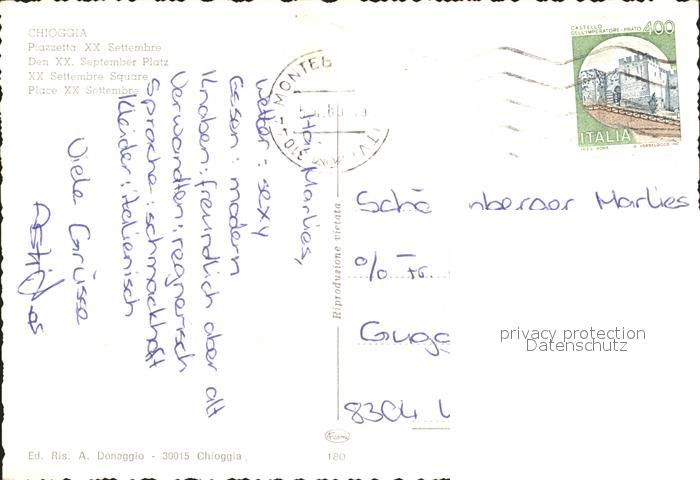 CHIOGGIA
Piazzetta XX Settembre
Den XX. September Platz
XX Settembre Square
Place XX Settembre
Hoi Marlies,
Wetter: sexy
Essen: modern
Knaben: freundlich aber alt
Verwandten: regnerisch
Sprache: schmackhaft
Kleider: italienisch
Viele Grüsse
Riproduzione vietata
MONTEB
CASTELLO
DELL'IMPERATORE-PRATO 400
ITALIA
Schö nberger Marlies
c/o Fr.
Gugg
8304
privacy protection
Datenschutz
Ed. Ris. A. Donaggio - 30015 Chioggia
180